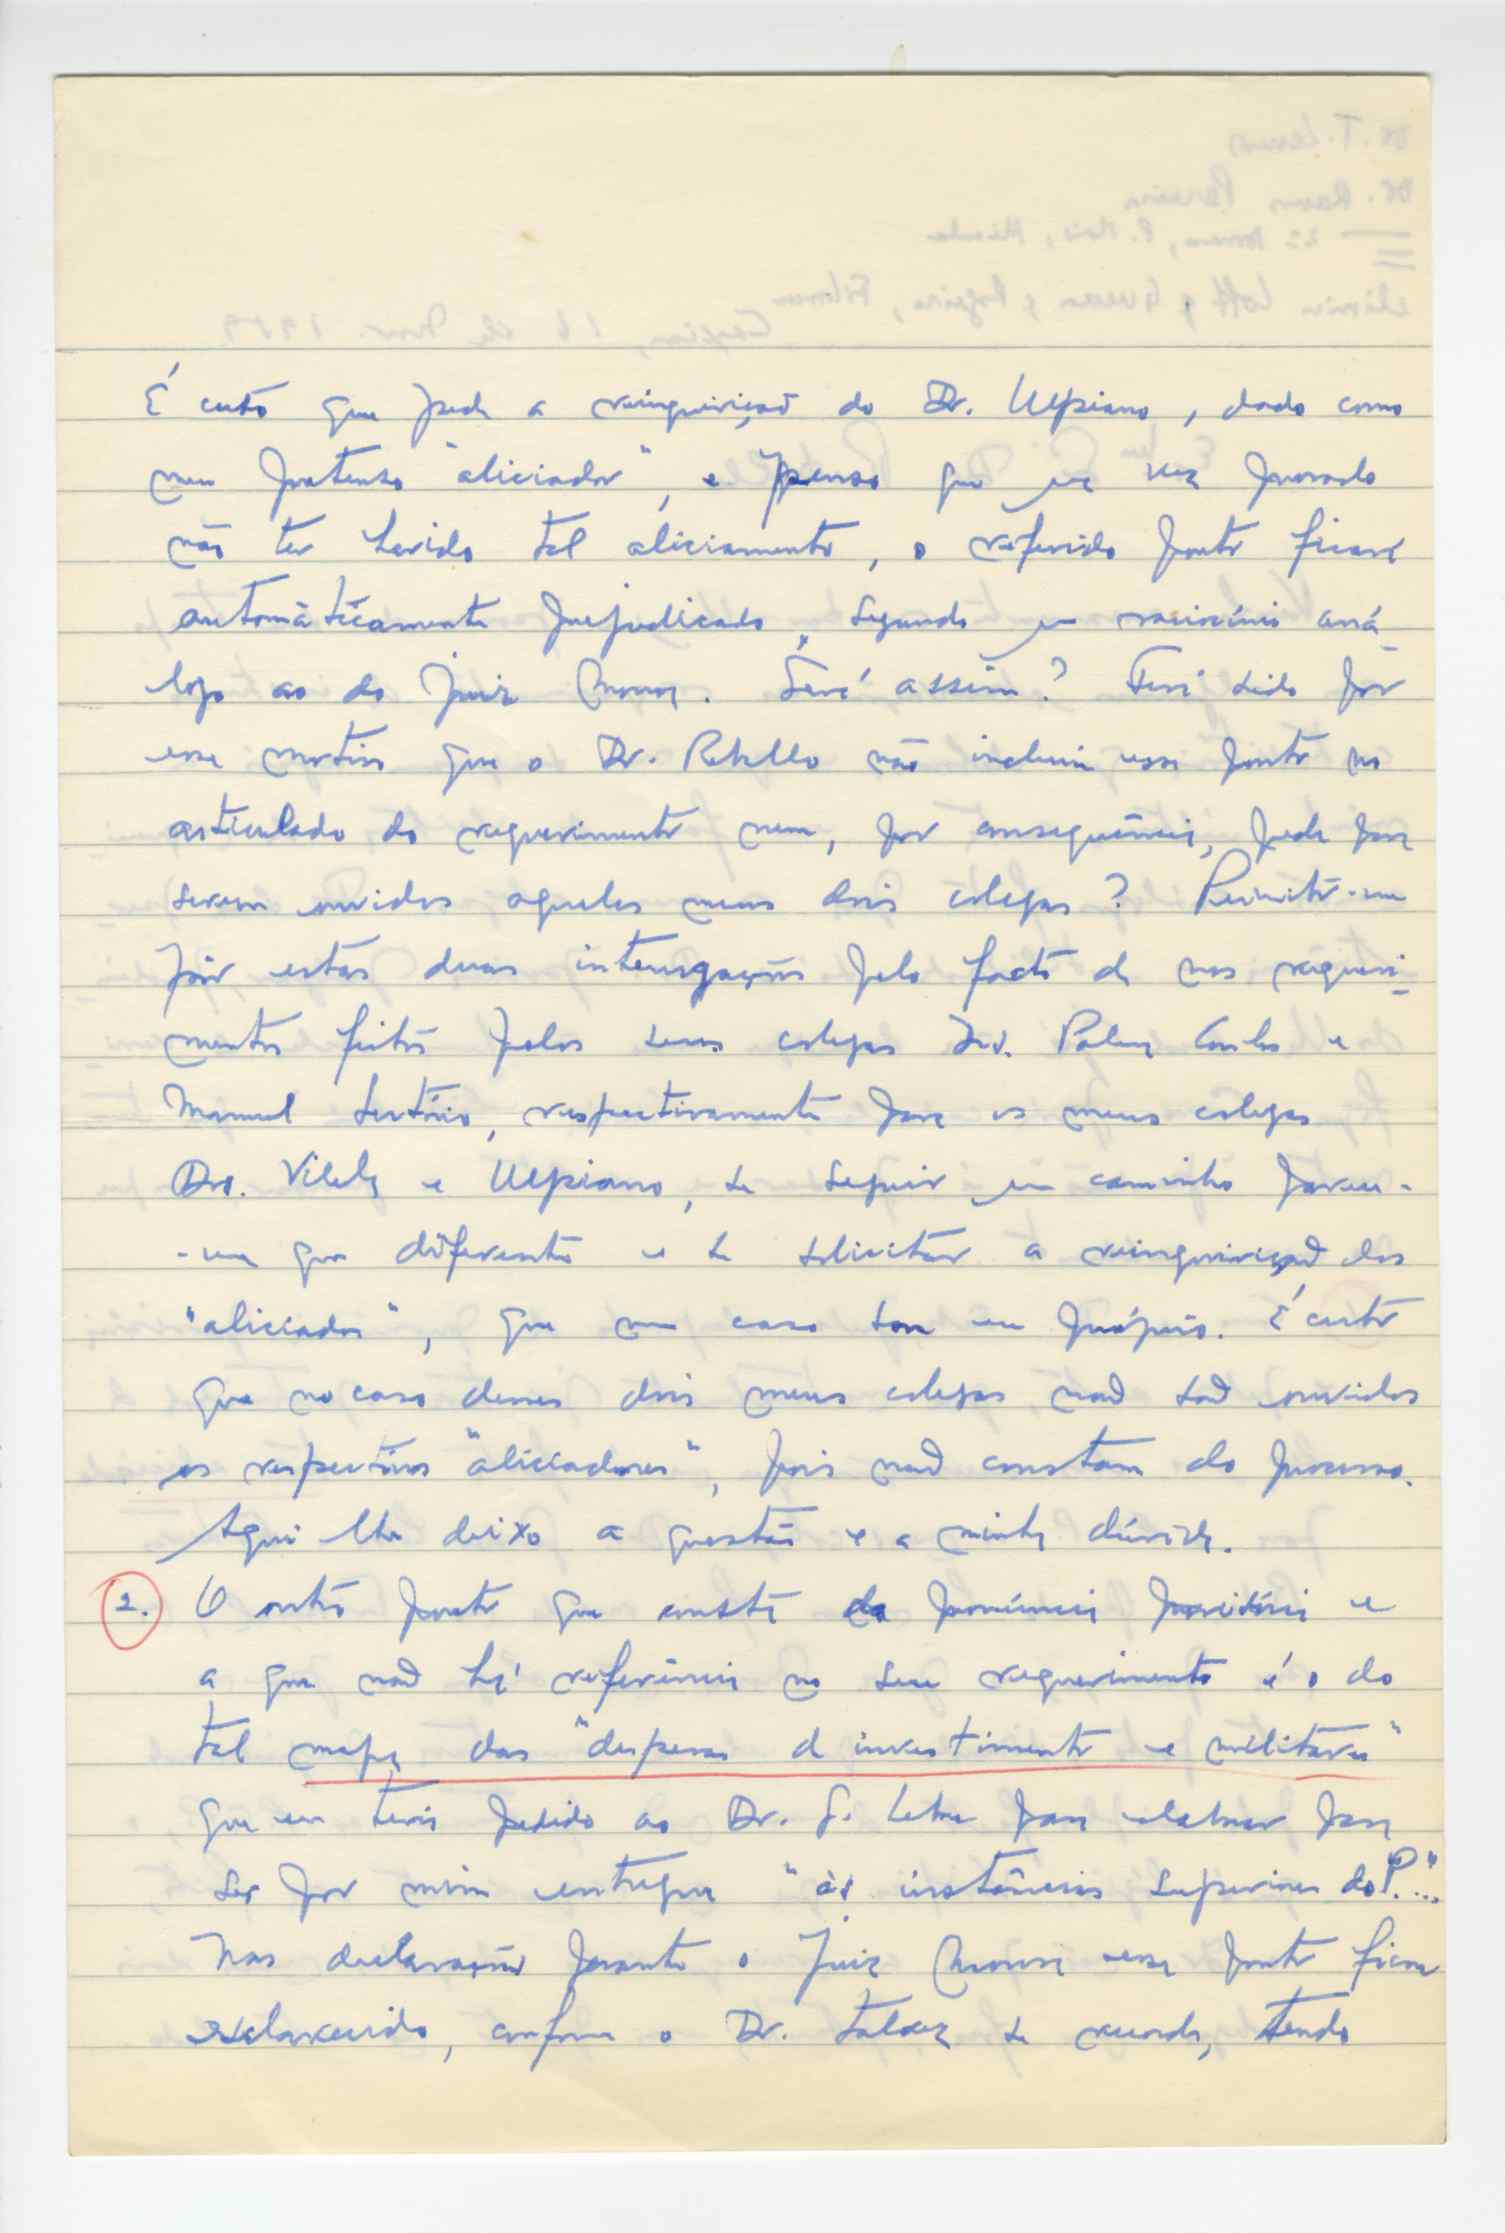 É certo que pede a reinquirição do Dr. Ulpiano, dado como
meu pretenso "aliciador", e penso que uma vez provado
não ter havido tal aliciamento, o referido ponto ficará
automàticamente prejudicado, segundo um raciocínio aná-
logo ao do Juiz. Será assim? Terá sido por
esse motivo que o Dr. Rebello não incluiu esse ponto no
articulado do requerimento nem, por consequência, pede para
serem ouvidos aqueles meus dois colegas? Permito-me
pôr estas duas interrogações pelo facto de nos requeri-
mentos feitos pelos seus colegas Drs. Palma Carlos e
Manuel Sertório, respectivamente para os meus colegas
Drs. Vilela e Ulpiano, se seguir um caminho parece-
-me que diferente e se solicitar a reinquirição dos
"aliciados", que no caso sou eu próprio. É certo
que no caso desses dois meus colegas não são ouvidos
os respectivos "aliciadores", pois não constam do processo.
Aqui lhe deixo a questão e a minha dúvida.
2. O outro ponto que consta da pronúncia provisória e
a que não há referência no seu requerimento é o do
tal mapa das "despesas de investimento e militares"
que eu teria pedido ao Dr. S. para elaborar para
ser por mim entregue "às instâncias superiores do P."...
Nas declarações perante o Juiz esse ponto ficou
esclarecido, conforme o Dr. talvez se recorda, tendo